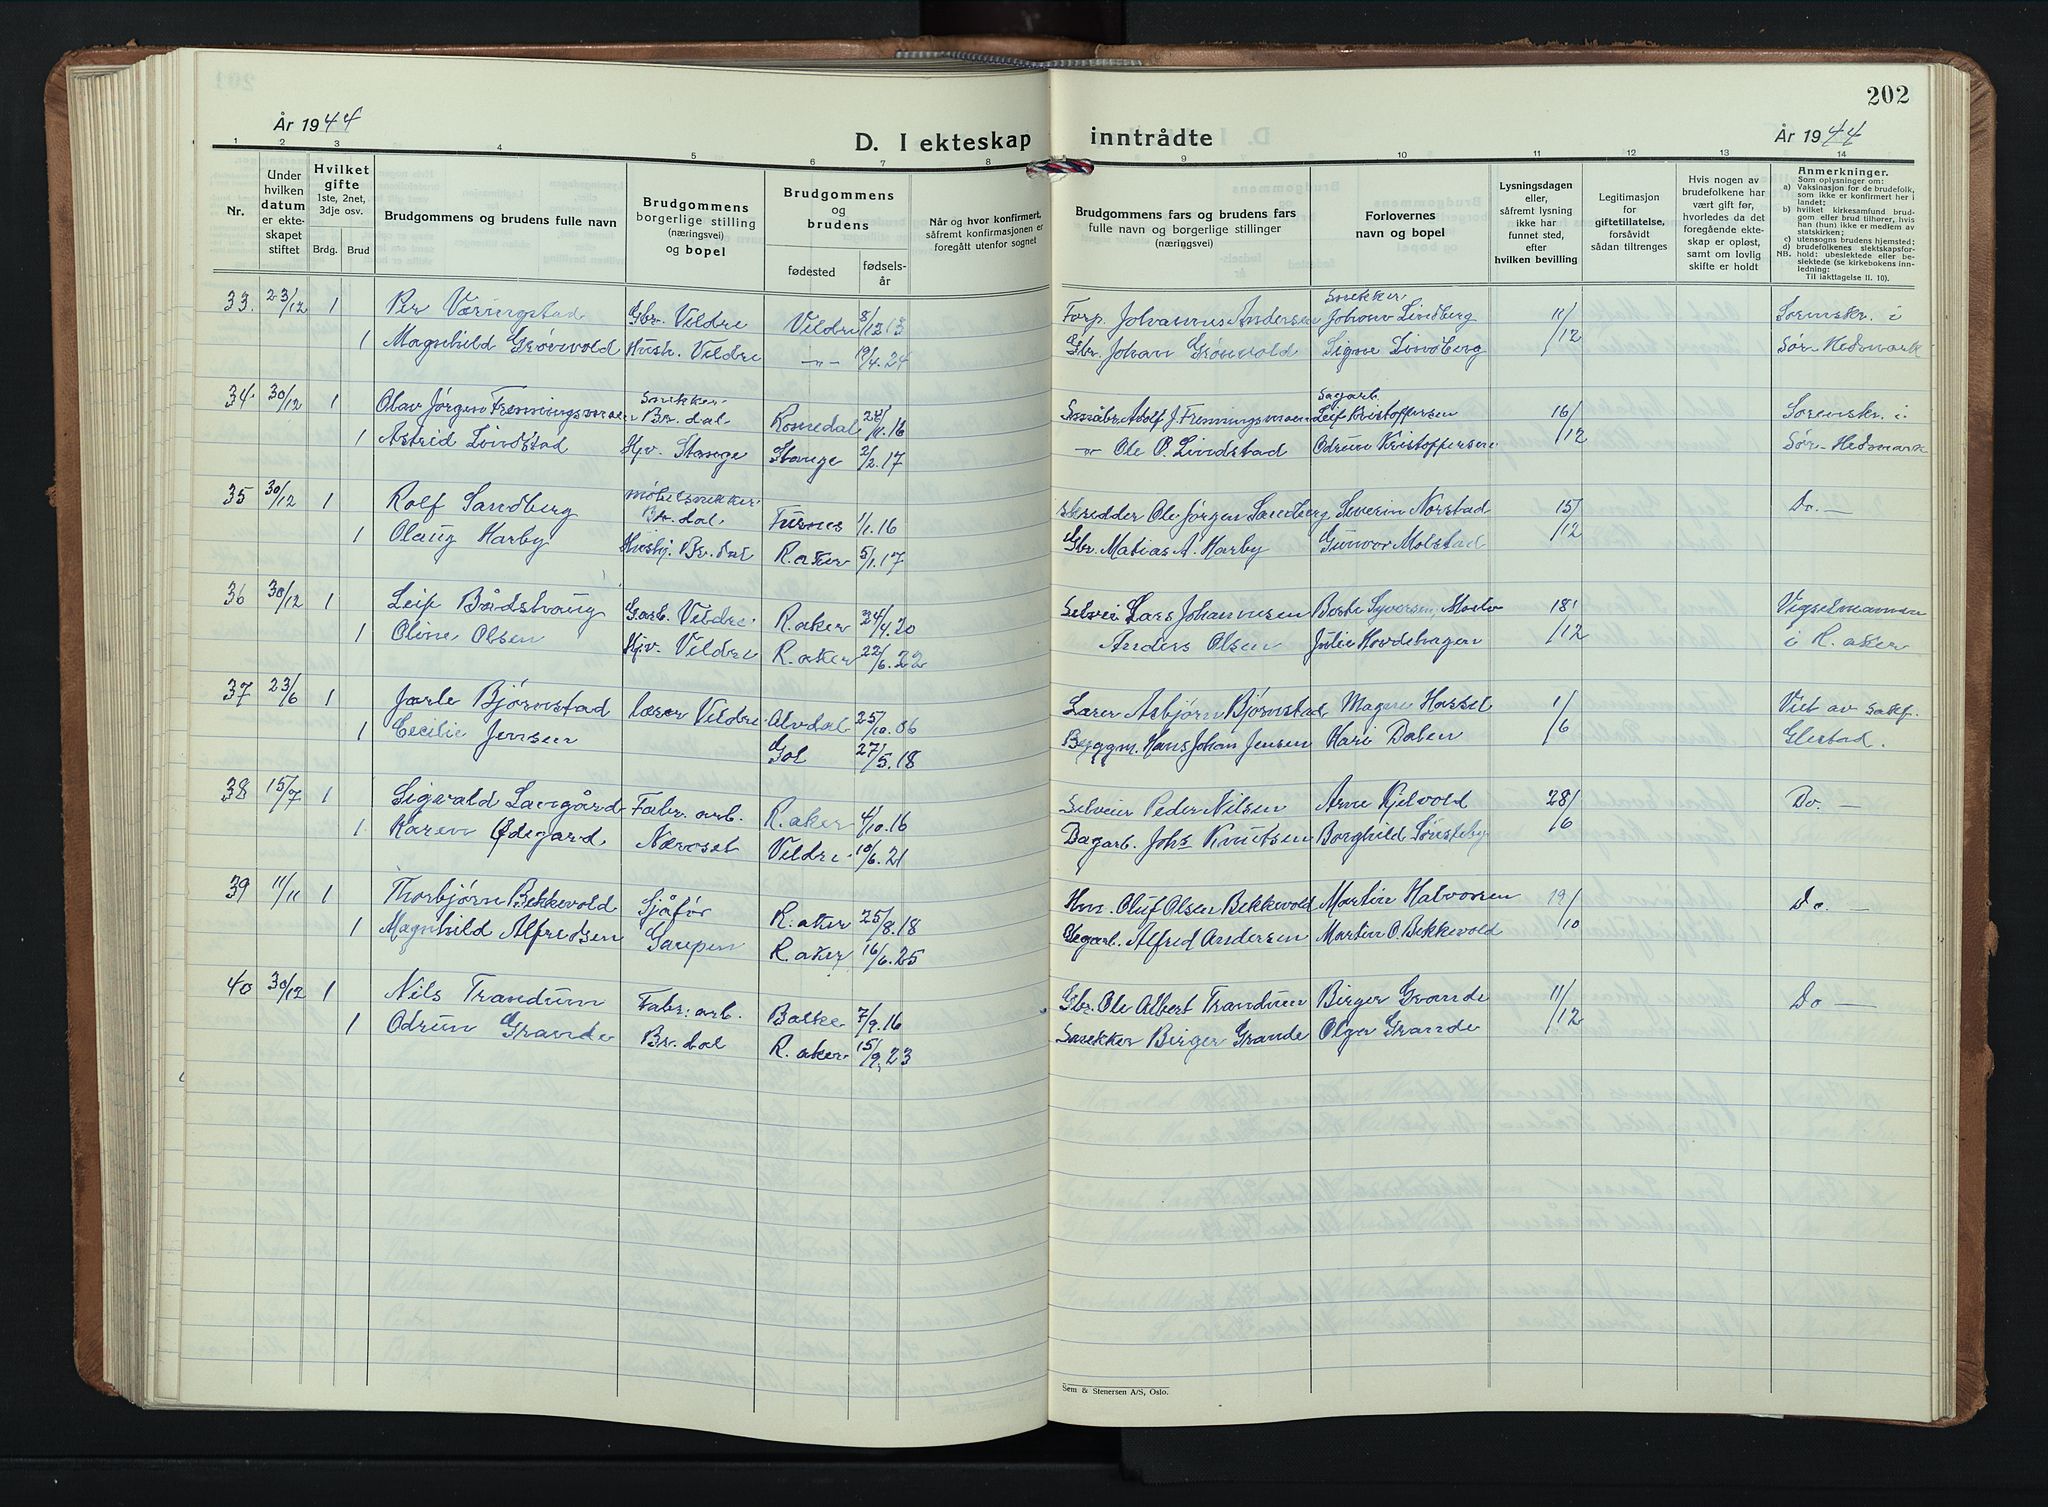 202
År 1944
D. I ekteskap inntrådte
År 1944
1 2 3 4 5 6 7 8 9 10 11 12 13 14
Nr.
Under hvilken datum er ekteskapet stiftet
Hvilket gifte 1ste, 2net, 3dje osv.
Brdg. Brud
Brudgommens og brudens fulle navn
Brudgommens borgerlige stilling (næringsvei) og bopel
Brudgommens og brudens
fødested
fødselsår
Når og hvor konfirmert, såfremt konfirmasjonen er foregått utenfor sognet
Brudgommens fars og brudens fars fulle navn og borgerlige stillinger (næringsvei)
Forlovernes navn og bopel
Lysningsdagen eller, såfremt lysning ikke har funnet sted, efter hvilken bevilling
Legitimasjon for giftetillatelse, forsåvidt sådan tiltrenges
Hvis nogen av brudefolkene har vært gift før, hvorledes da det foregående ekteskap er opløst, samt om lovlig skifte er holdt
Anmerkninger.
Som oplysninger om:
a) Vaksinasjon for de brudefolk, som ikke er konfirmert her i landet;
b) hvilket kirkesamfund brudgom eller brud tilhører, hvis han (hun) ikke er medlem av statskirken;
c) utensogns brudens hjemsted;
d) brudefolkenes slektskapsforhold: ubeslektede eller beslektede (se kirkebokens innledning:
NB.
Til iakttagelse II. 10).
33. 23/12 1 Per Væringstad Gbr. Veldre Veldre 8/12 13 Forp. Johannes Andersen Snekker Johan Lindberg 11/12 Sorenskr. i
1 Magnhild Grønvold Hush. Veldre -"- 19/4.24 Gbr. Johan Grønvold Signe Lindberg Sør-Hedmark
34. 30/12 1 Olav Jørgen Frenningsmoen Snekker Br.dal Romedal 28/11.16 Småbr. Adolf J. Frenningsmoen Sagarb. Leif Kristoffersen 16/12 Sorenskr. i
1 Astrid Lindstad Hjv. Stange Stange 2/2.17 -"- Ole O. Lindstad Odrun Kristoffersen Sør-Hedmark
35 30/12 1 Rolf Sandberg Møbelsnekker Br.dal Furnes 1/1.16 Skredder Ole Jørgen Sandberg Severin Norstad 15/12 Do. —
1 Olaug Harby Husbj. Br.dal R.aker 5/1.17 Gbr. Matias A. Harby Gunvor Molstad
36 30/12 1 Leif Bådstvang Garb. Veldre R.aker 24/4.20 Selvei Lars Johannesen Iversen, Moelv 18/12 Vigselmannen
1 Oline Olsen Hjv. Veldre R.aker 22/6.22 Anders Olsen Julie Hovdehagen i R.aker
37 23/6 1 Jarle Bjørnstad lærer Veldre Alvdal 25/10.06 Lærer Asbjørn Bjørnstad Magne Hassel 1/6 Viet av sokf.
1 Cecilie Jensen Gol 27/5.18 Byggm. Hans Johan Jensen Kari Dalen Glestad.
38 15/7 1 Sigvald Langård Fabr. arb. R.aker 4/10.16 Selveier Peder Nilsen Arne Kjelvold 28/6 Do. —
1 Karen Ødegard Næroset Veldre 10/6.21 Dagarb. Johs Knutsen Borghild Sønsteby
39 11/11 1 Thorbjørn Bekkevold Sjåfør R.aker 25/8.18 Hm. Oluf Olsen Bekkevold Martin Halvorsen 19/10 Do. —
1 Magnhild Alfredsen Gaupen R.aker 16/6.25 Vegarb. Alfred Andersen Martin O. Bekkevold
40 30/12 1 Nils Trandum Fabr. arb. Balke 7/9.16 Gbr. Ole Albert Trandum Birger Grande 11/12 Do —
1 Odrun Grande Br.dal R.aker 15/9.23 Snekker Birger Grande Olger Grande
Sem & Stenersen A/S, Oslo.